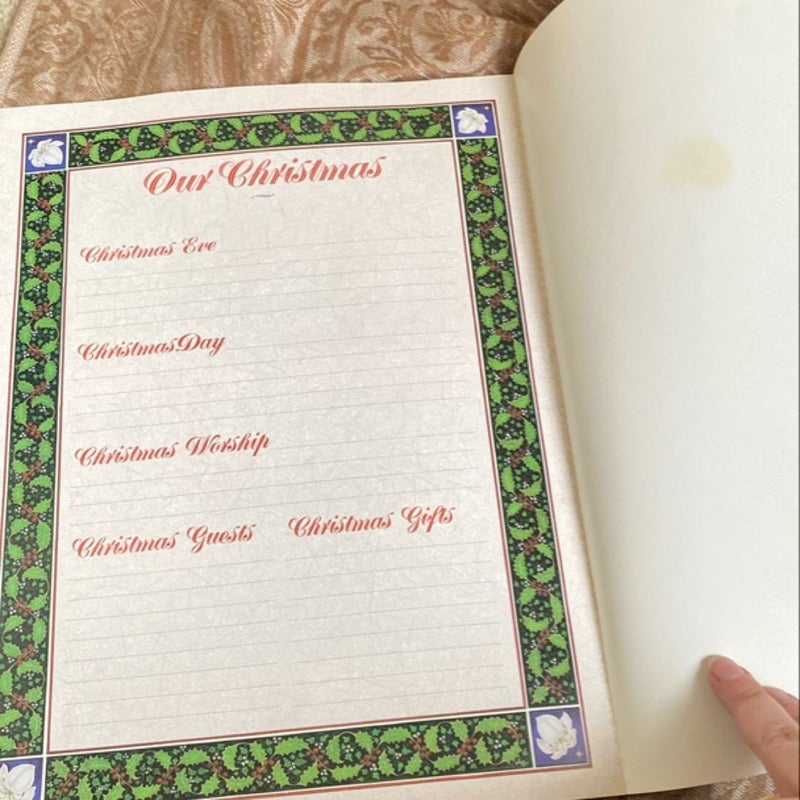 Our Christmas
Christmas Eve
Christmas Day
Christmas Worship
Christmas Guests Christmas Gifts